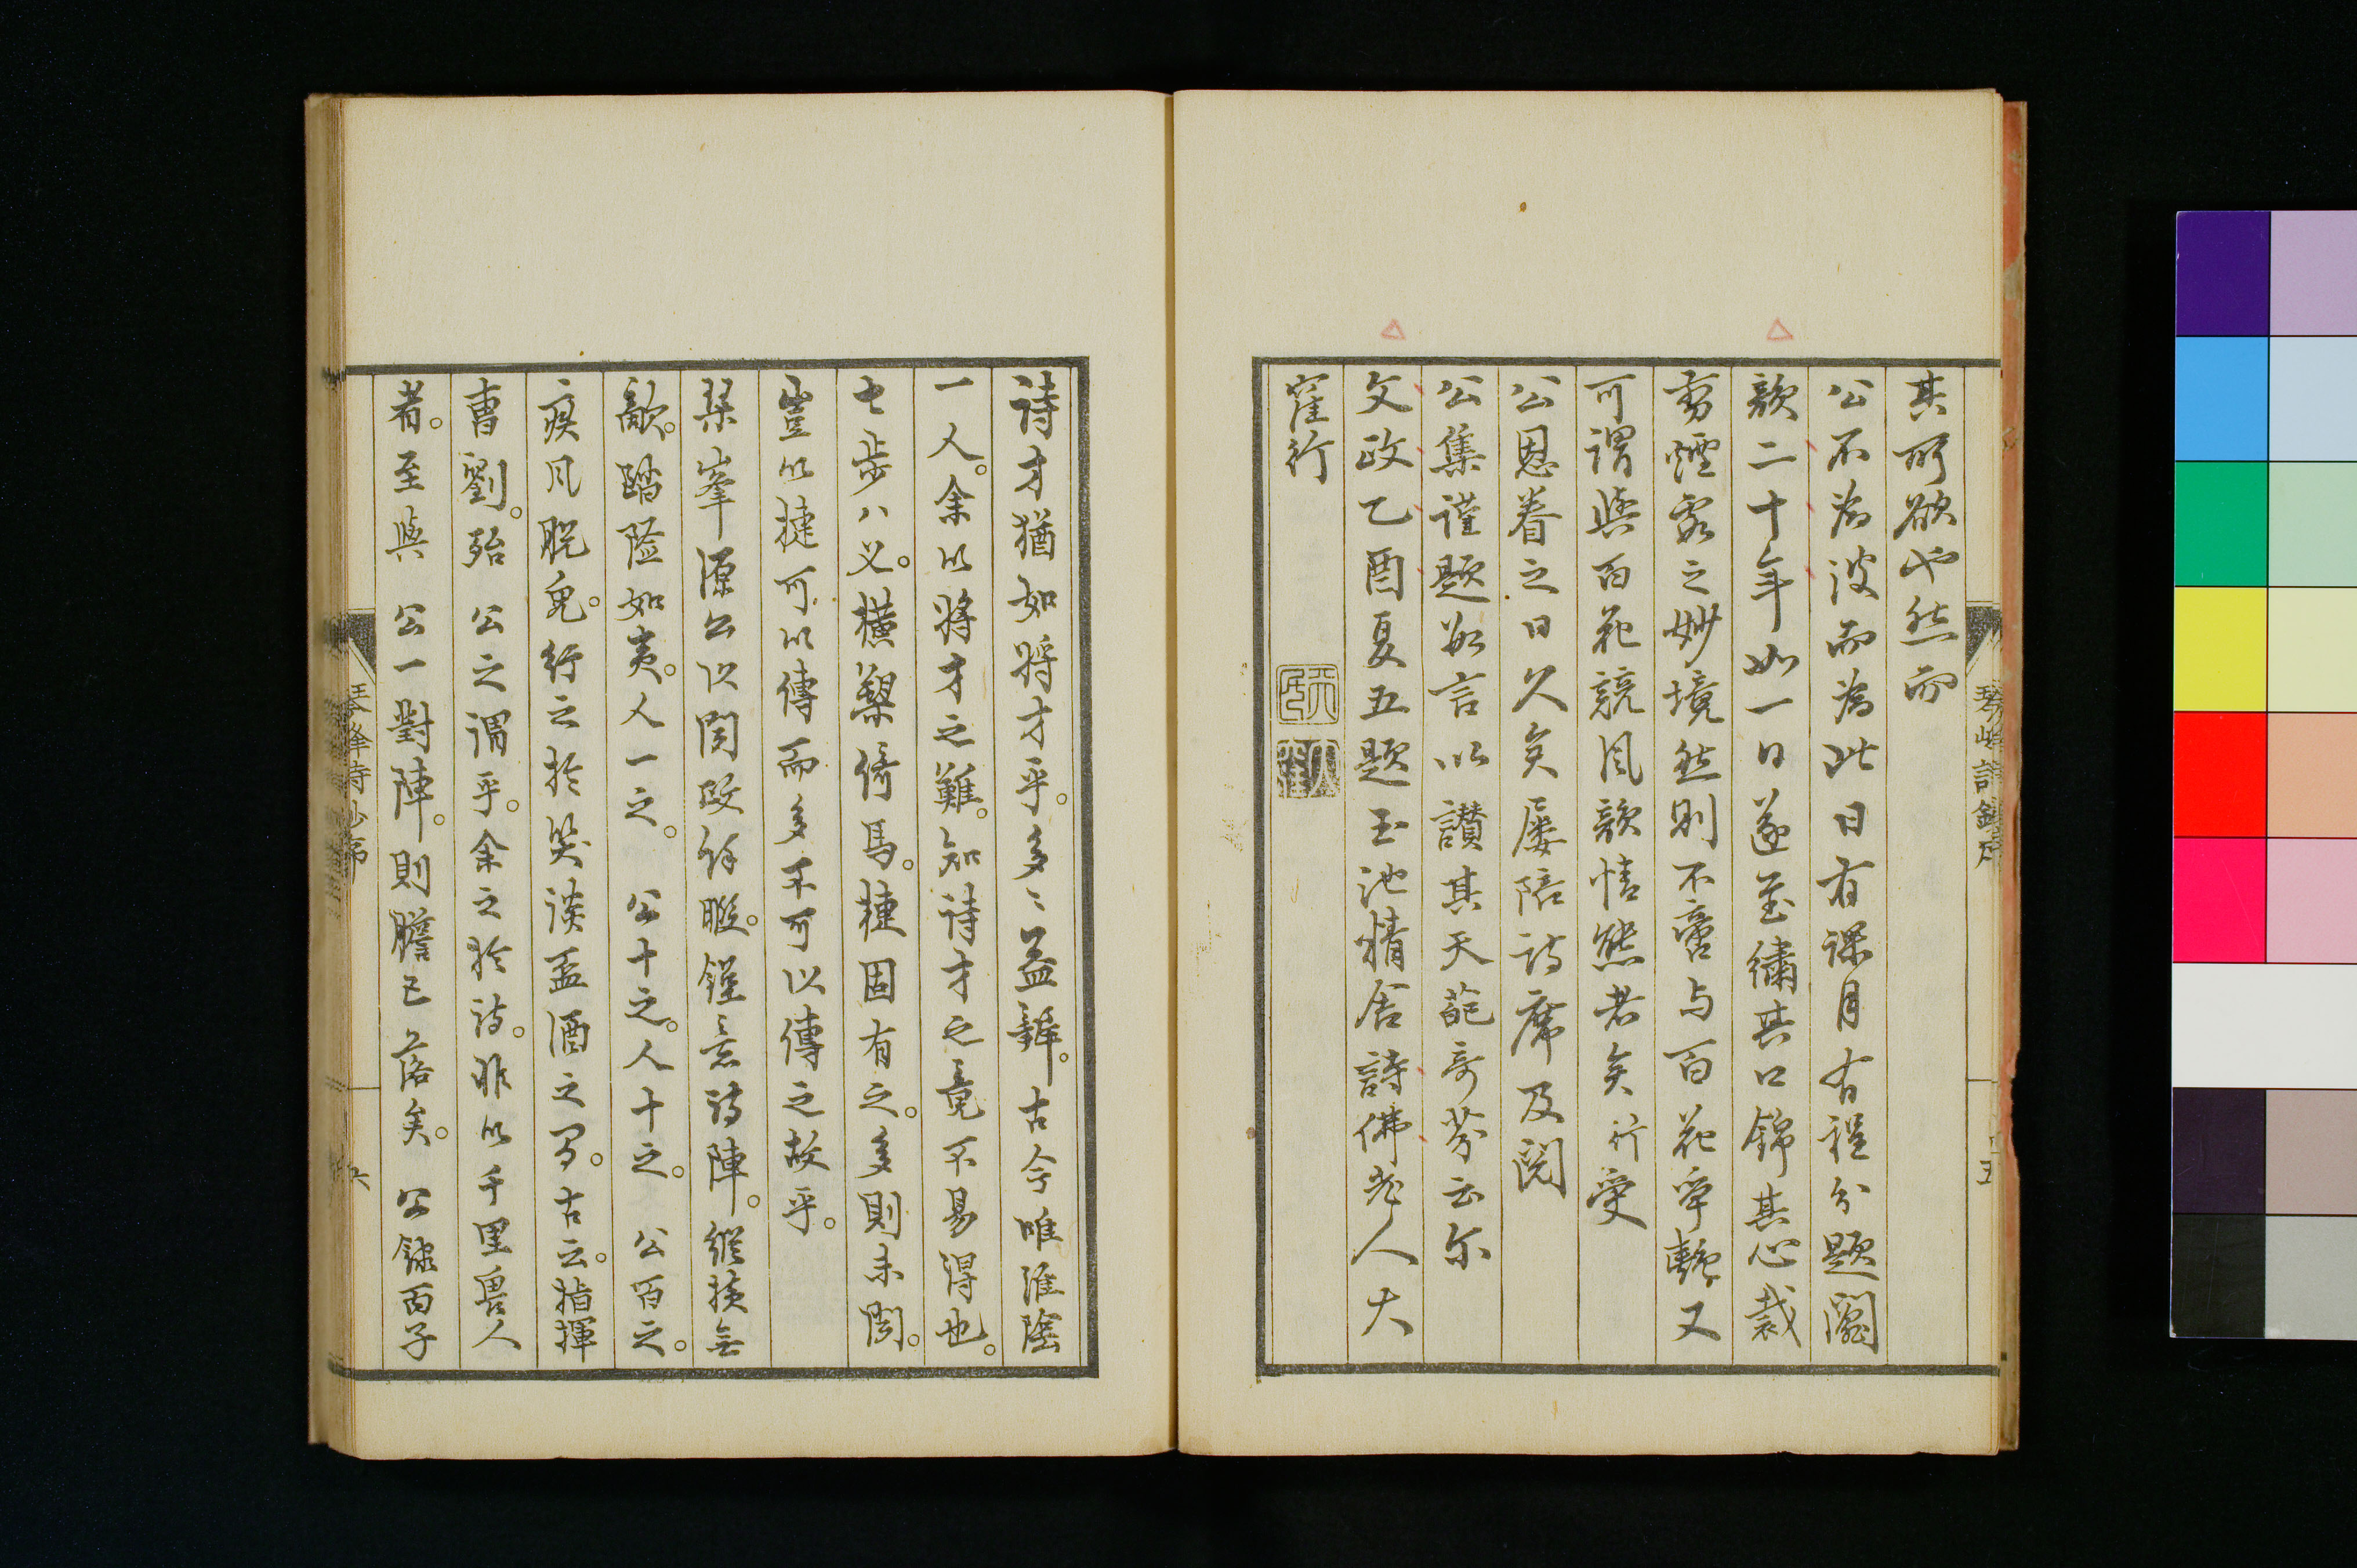 其所欲也然而
公不為彼而為此日有課月有程分題鬮
韻二十年如一日遂至繡其口錦其心裁
雲煙霞之妙境然則不啻与百花爭艷又
可謂與百花競風韻情態者矣行受
公恩眷之日久矣屢陪詩席及閱
公集謹題數言以讃其天葩奇芬云尔
文政乙酉夏五題玉池精舍詩佛老人大
窪行
五
詩才猶如將才乎多々益辯古今唯淮陰
一人余以將才之難知詩才之竟不易得也
七步八叉橫槊倚馬捷固有之多則未聞
豈以捷可以傳而多不可以傳之故乎
琴峯源公以閏政餘暇鏗意詩陣縱橫無
敵踏險如夷人一之 公十之人十之 公百之
疾風脫兔行之於笑談盃酒之間古云指揮
曹劉殆 公之謂乎余之於詩非以千里畏人
者至與 公一對陣則膽已落矣 公録百子
琴峰詩鈔序
六